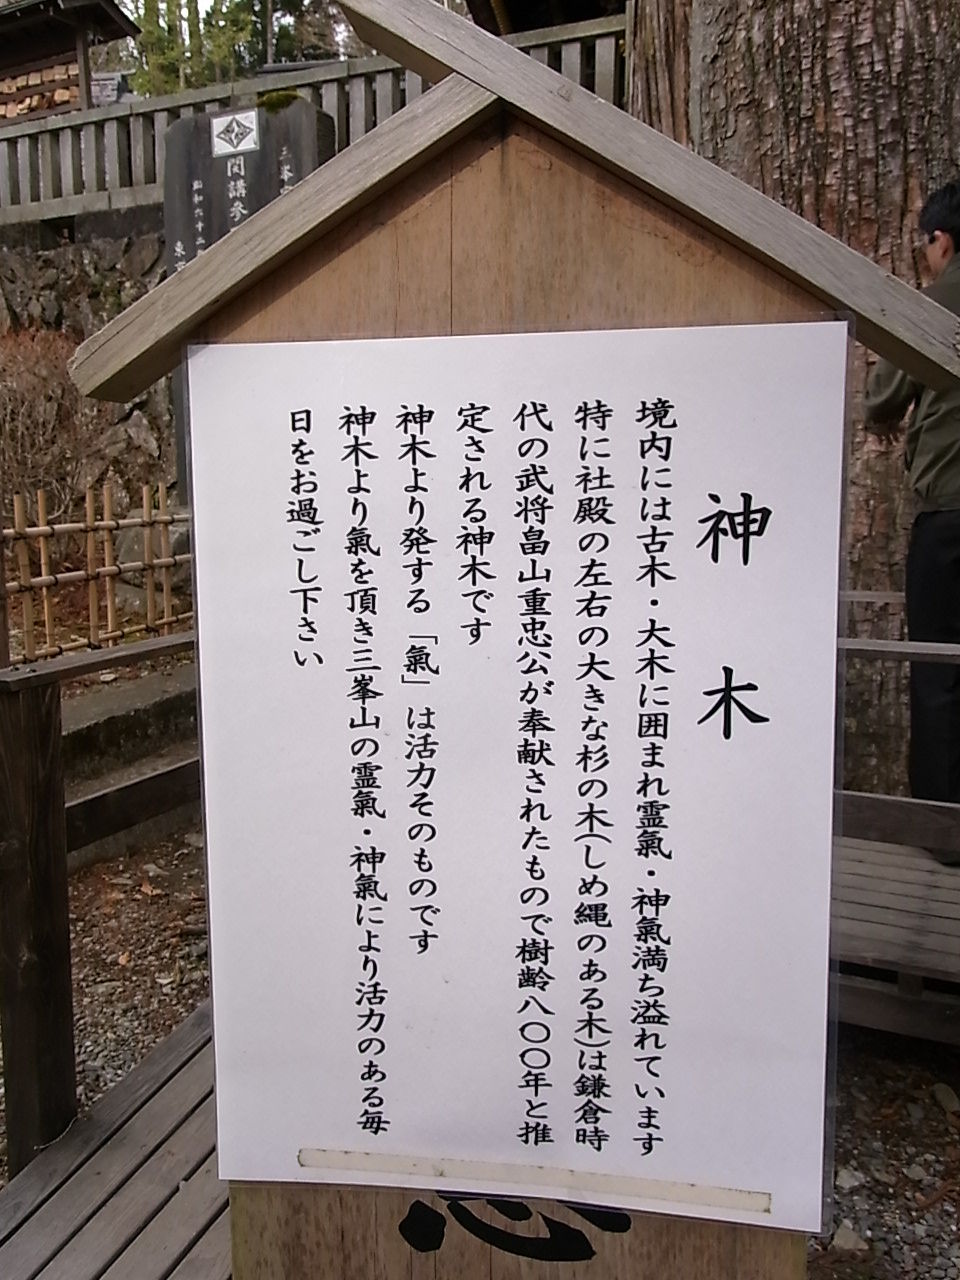 神木
境内には古木・大木に囲まれ霊氣・神氣満ち溢れています
特に社殿の左右の大きな杉の木(しめ縄のある木)は鎌倉時
代の武将畠山重忠公が奉献されたもので樹齢八〇〇年と推
定される神木です
神木より発する「氣」は活力そのものです
神木より氣を頂き三峯山の霊氣・神氣により活力のある毎
日をお過ごし下さい
講参
昭和六十二